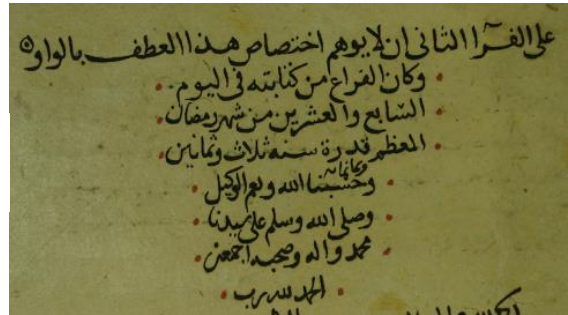 على الفرا الثانى ان لا يوهم اختصاص هذا العطف بالواو
وكان الفراغ من كتابته فى اليوم
السابع والعشرين من شهر رمضان
المعظم قدرة سنه ثلاث وثمانين
وثمانمائه
وحسبنا الله ونعم الوكيل
وصلى الله وسلم على سيدنا
محمد واله وصحبه اجمعين
الحمد لله رب